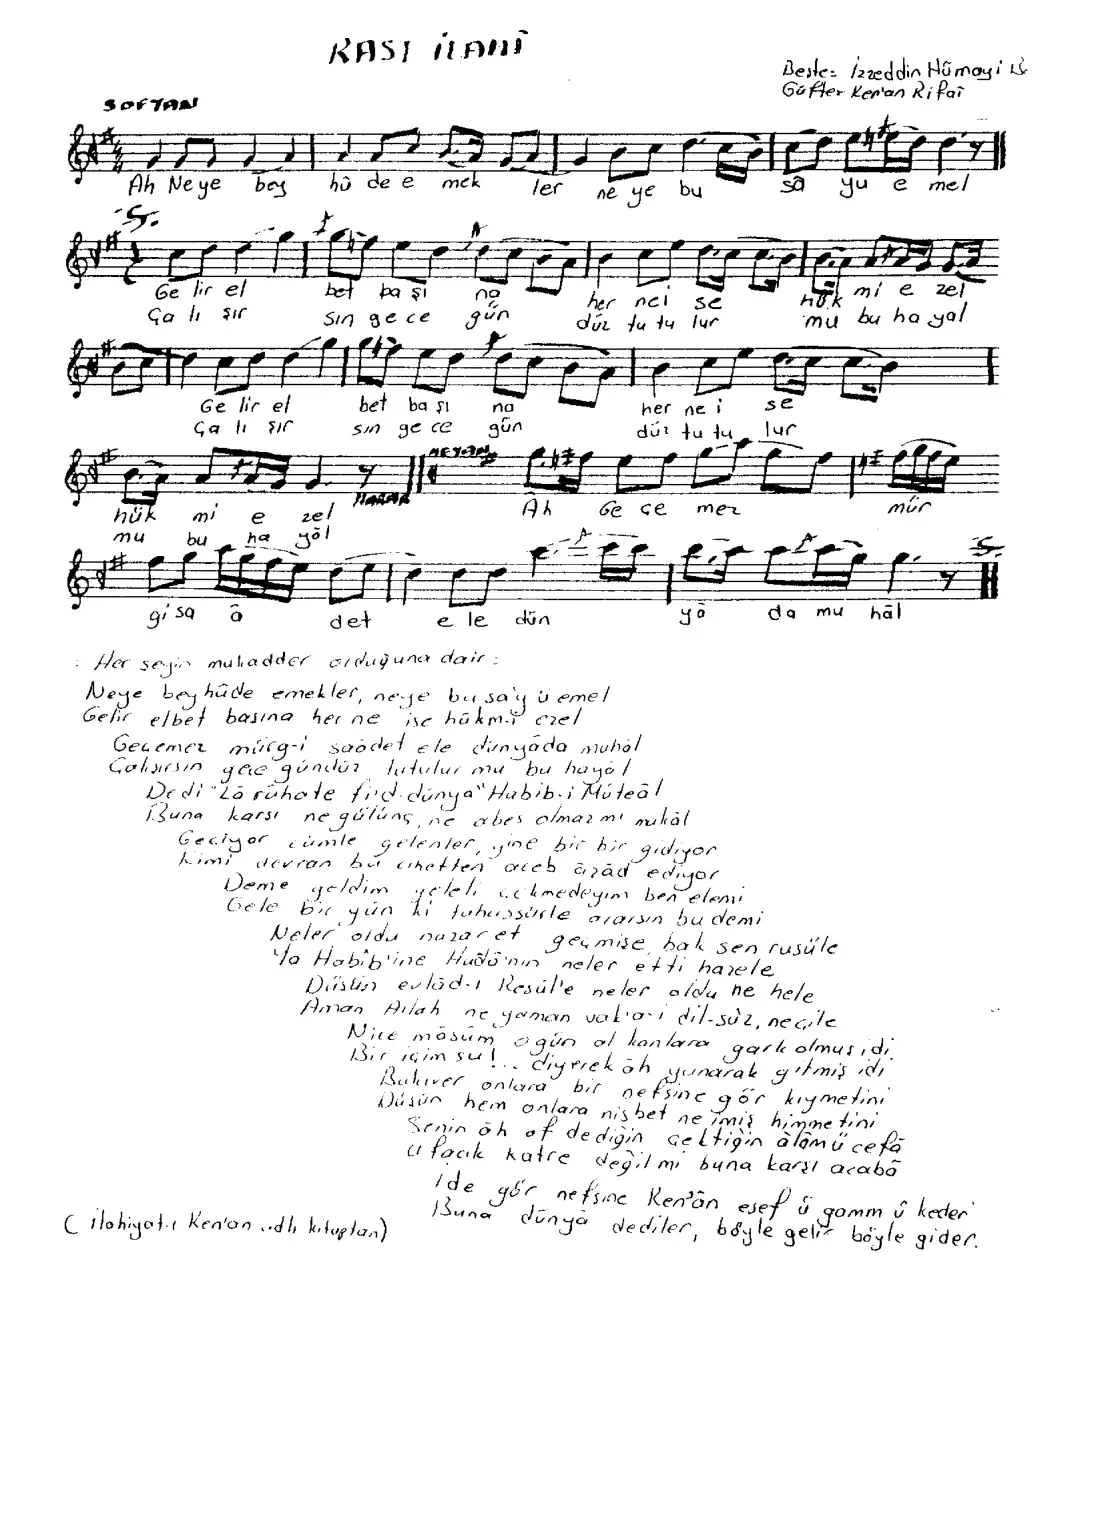 RAST İLAHİ
Beste: İzzeddin Hümayi B.
Güfte: Ken'an Rifaî
SOFYAN
Ah Ne ye bey hû de e mek ler ne ye bu sâ yu e mel
Ge lir el bet ba şı na her ne i se hük mi e zel
Ça lı şır sın ge ce gün düz tu tu lur mu bu ha yal
Ge lir el bet ba şı na her ne i se
Ça lı şır sın ge ce gün düz tu tu lur
MEYAN
hük mi e zel Ah Ge çe mez mür
KARAR
mu bu ha yâl
gi sa â det e le dün yâ da mu hâl
Her şeyin mukadder olduğuna dair:
Neye beyhûde emekler, neye bu sa'y ü emel
Gelir elbet başına her ne ise hükm-i ezel
Geçemez mürg-i saâdet ele dünyâda muhâl
Çalışırsın gece gündüz tutulur mu bu hayâl
Dedi "Lâ râhate fi'd-dünya" Habib-i Müteâl
Buna karşı ne gülünç, ne abes olmaz mı makâl
Geçiyor cümle gelenler, yine bir bir gidiyor
Kimi devran bu cihetten aceb âzâd ediyor
Deme geldim geleli çekmedeyim ben elemi
Gele bir gün ki tahassürle ararsın bu demi
Neler oldu nazar et geçmişe, bak sen rusüle
Ya Habîb'ine Hudâ'nın neler etti hazele
Düşün evlâd-ı Resûl'e neler oldu ne hele
Aman Allah ne yaman vak'a-i dil-sûz, ne çile
Nice mâsûm o gün al kanlara gark olmuş idi
Bir içim su!... diyerek âh yanarak gitmiş idi
Bakıver onlara bir nefsine gör kıymetini
Düşün hem onlara nisbet ne imiş himmetini
Senin âh of dediğin çektiğin âlâm ü cefâ
Ufacık katre değil mi buna karşı acabâ
İde gör nefsine Ken'ân esef ü gamm ü kederi
Buna dünyâ dediler, böyle gelir böyle gider.
( ilahiyat-ı Ken'an adlı kitaptan)